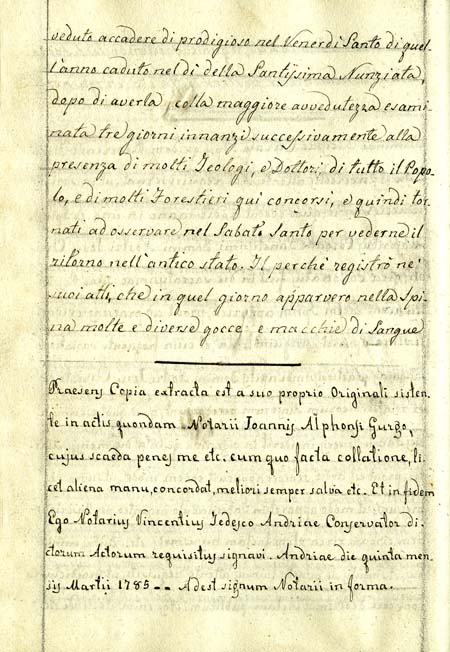 veduto accadere di prodigioso nel Venerdì Santo di quel-
l'anno caduto nel dì della Santissima Nunziata,
dopo di averla colla maggiore avvedutezza esami-
nata tre giorni innanzi successivamente alla
presenza di molti Teologi, e Dottori, di tutto il Popo-
lo, e di molti Forestieri qui concorsi, e quindi tor-
nati ad osservare nel Sabato Santo per vederne il
ritorno nell'antico stato. Il perchè registrò ne'
suoi atti, che in quel giorno apparvero nella Spi-
na molte e diverse gocce, e macchie di Sangue
Praesens Copia extracta est a suo proprio Originali sisten-
te in actis quondam Notarii Ioannis Alphonsi Gurgo,
cujus scaeda penes me etc. cum quo facta collatione, li-
cet aliena manu, concordat, meliori semper salva etc. Et in fidem
Ego Notarius Vincentius Tedesco Andriae Conservator di-
ctorum Actorum requisitus signavi. Andriae die quinta men-
sis Martii 1785 -- Adest signum Notarii in forma.